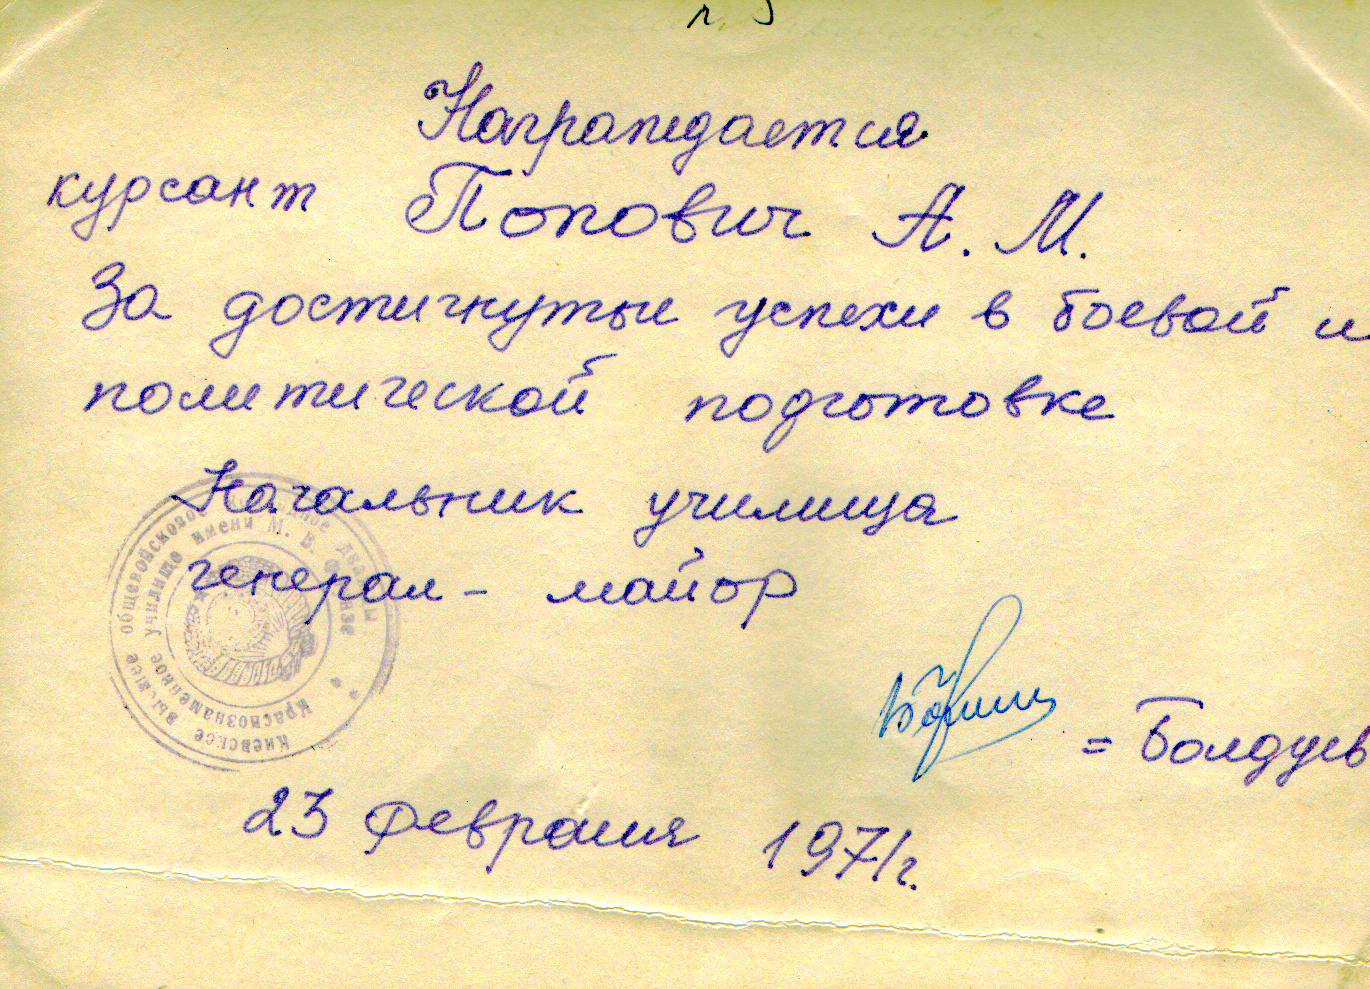 Награждается
курсант Попович А. М.
За достигнутые успехи в боевой и
политической подготовке
Начальник училища
генерал - майор
= Болдуев
23 февраля 1971 г.
Киевское высшее общевойсковое командное дважды
Краснознаменное училище имени М. В. Фрунзе